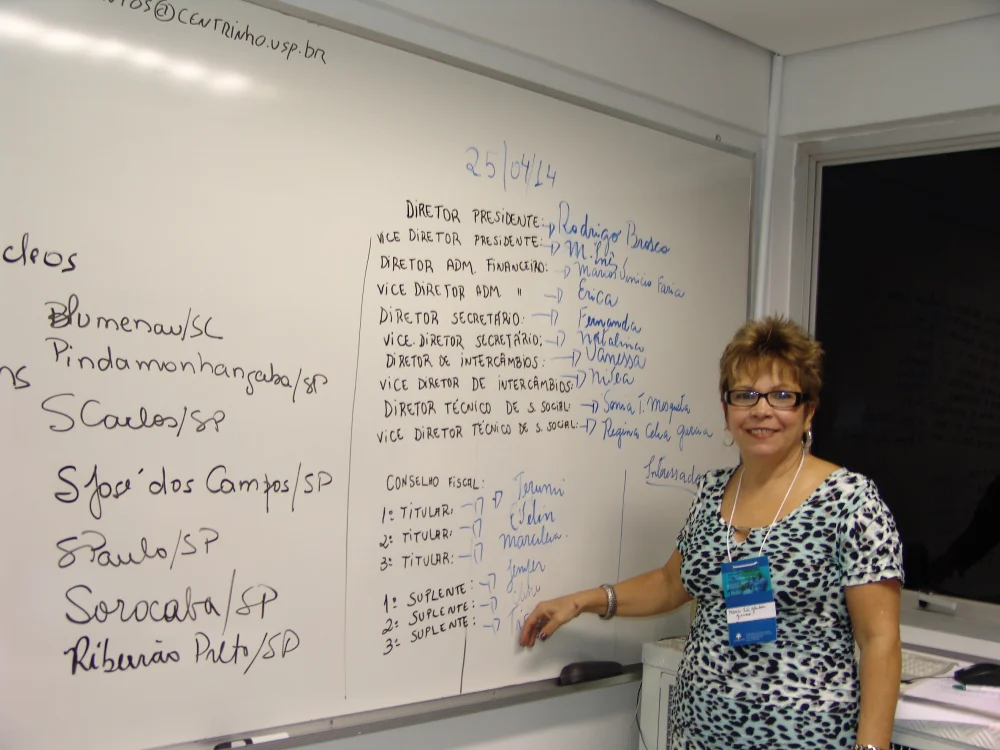 @CENTRINHO.USP.BR
25/04/14
DIRETOR PRESIDENTE: Rodrigo Brosco
VICE DIRETOR PRESIDENTE: Mª Inês
DIRETOR ADM. FINANCEIRO: Marcos Vinicio Faria
VICE DIRETOR ADM. " Erica
DIRETOR SECRETÁRIO: Fernanda
VICE. DIRETOR SECRETÁRIO: Natalina
DIRETOR DE INTERCÂMBIOS: Vanessa
VICE DIRETOR DE INTERCÂMBIOS: Nilea
DIRETOR TÉCNICO DE S. SOCIAL: Sonia T. Mesquita
VICE DIRETOR TÉCNICO DE S. SOCIAL: Regina Celia Garcia
CONSELHO FISCAL:
1º TITULAR:
2º TITULAR:
3º TITULAR:
1º SUPLENTE:
2º SUPLENTE:
3º SUPLENTE:
cleos
Blumenau/SC
Pindamonhangaba/SP
S Carlos/SP
S José dos Campos/SP
S Paulo/SP
Sorocaba/SP
Ribeirão Preto/SP